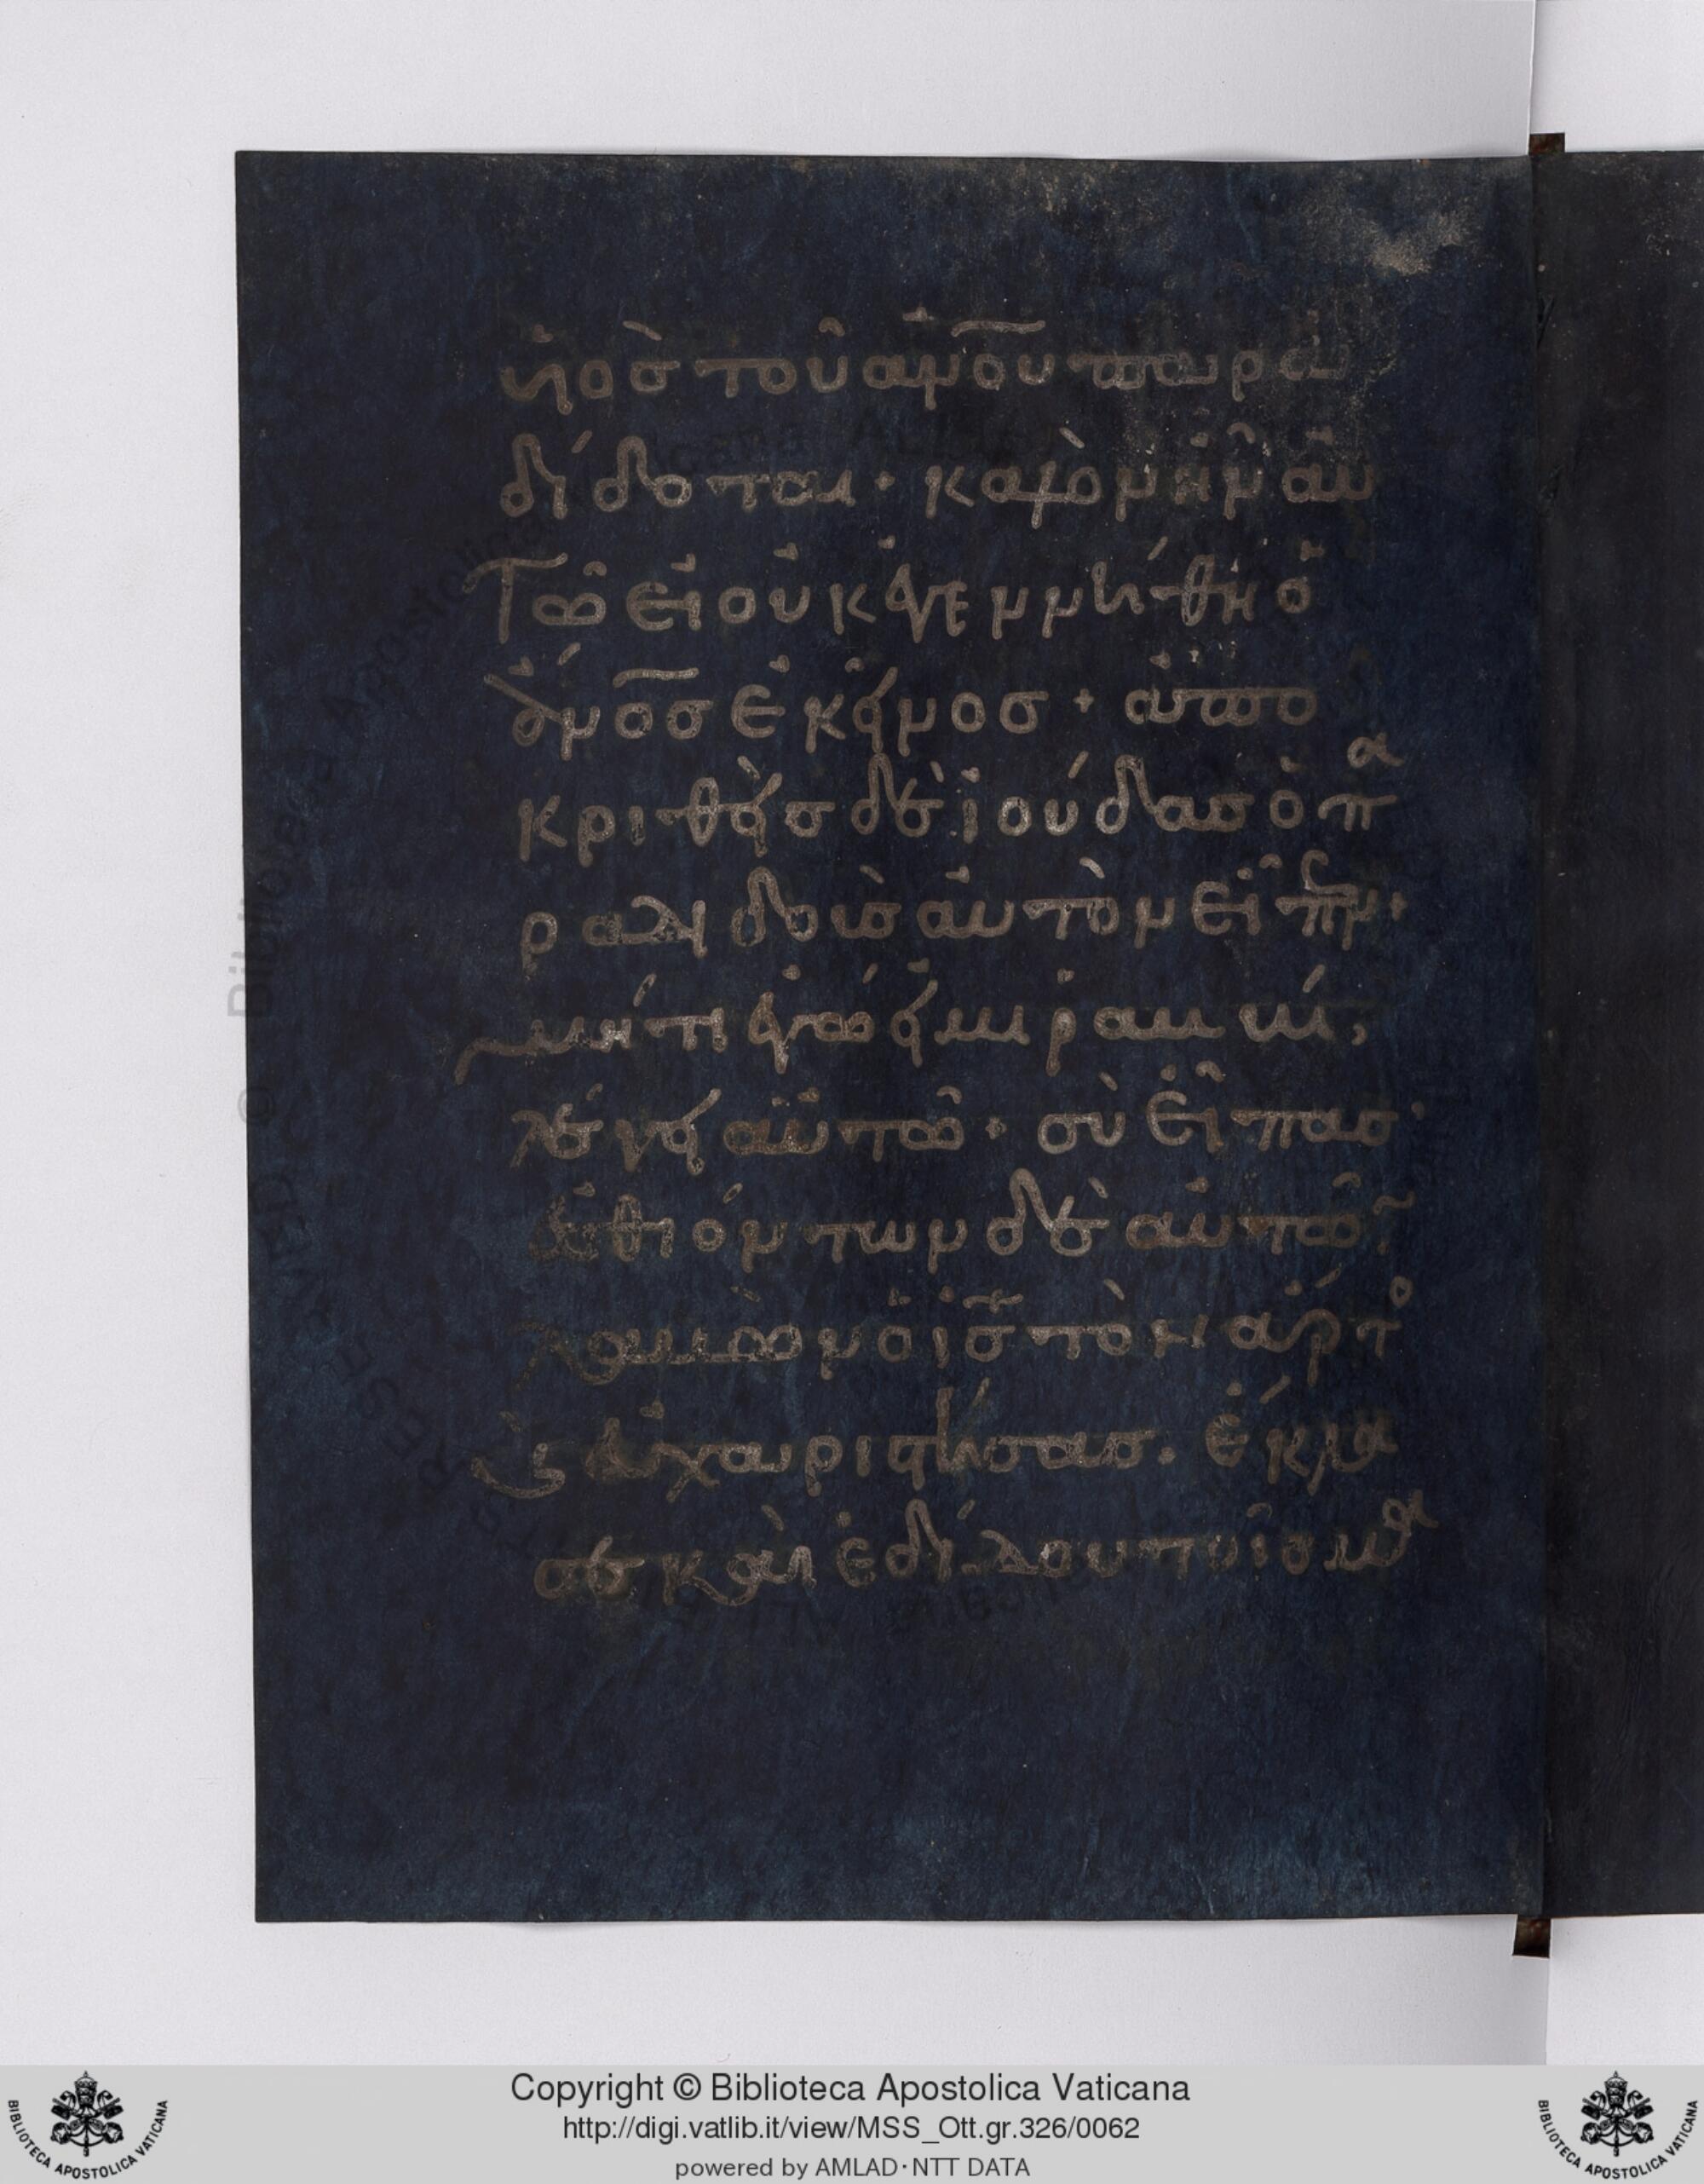 ὑιὸσ τοῦ ἀν̅ο̅υ̅ παραδ
δίδοται · καλὸν ἦν αυ
τῶ εἰ οὐκ ἐγεννήθη ὁ
ἄν̅ο̅σ̅ ἐκεῖνοσ + ἀπο
κριθεὶσ δὲ ἰούδασ ὁ πα
ραδιδοὺσ αὐτὸν εἶπεν ·
μήτι ἐγώ εἰμι ῥαββί ;
λέγει αὐτῶ · σὺ εἶπασ ·
ἐσθιόντων δὲ αὐτῶν
λαβὼν ὁ ι̅σ̅ τὸν ἄρτο
ϗ εὐχαριστήσασ . ἔκλα
σε καὶ ἐδίδου τοῖσ μαθ
Copyright © Biblioteca Apostolica Vaticana
http://digi.vatlib.it/view/MSS_Ott.gr.326/0062
powered by AMLAD·NTT DATA
BIBLIOTECA APOSTOLICA VATICANA
BIBLIOTECA APOSTOLICA VATICANA